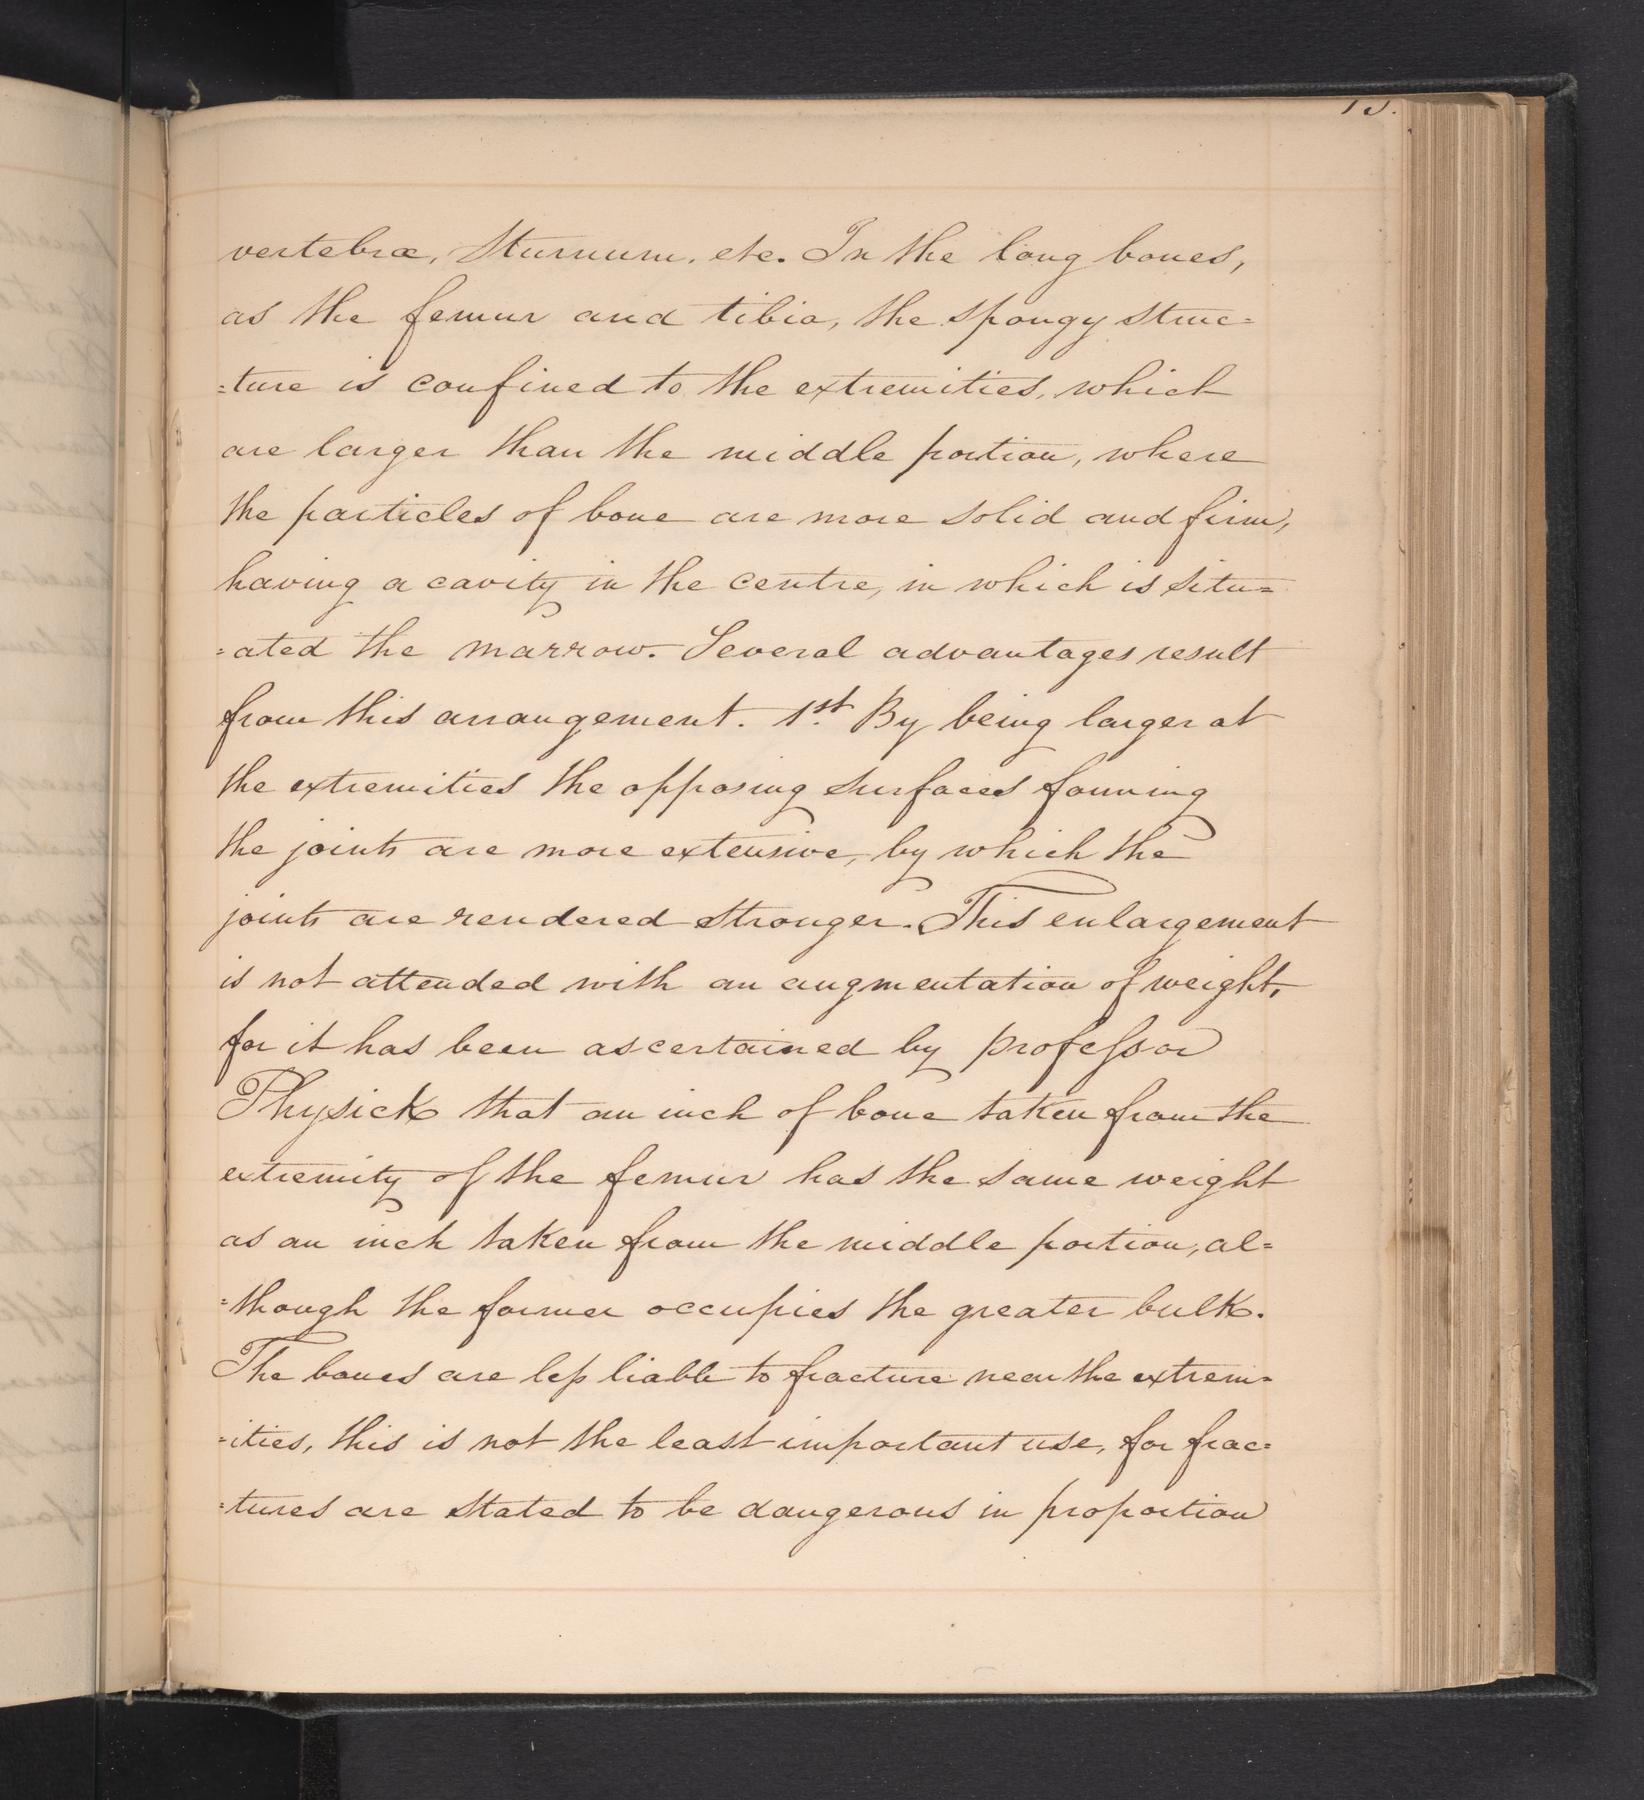 vertebræ, Sturnum, etc. In the long bones,
as the femur and tibia, the spongy struc=
=ture is confined to the extremities, which
are larger than the middle portion, where
the particles of bone are more solid and firm,
having a cavity in the centre, in which is situ=
=ated the marrow. Several advantages result
from this arrangement. 1st. By being larger at
the extremities the opposing surfaces forming
the joints are more extensive, by which the
joints are rendered stronger. This enlargement
is not attended with an augmentation of weight,
for it has been ascertained by professor
Physick that an inch of bone taken from the
extremity of the femur has the same weight
as an inch taken from the middle portion, al=
=though the former occupies the greater bulk.
The bones are less liable to fracture near the extrem=
=ities, this is not the least important use, for frac=
=tures are stated to be dangerous in proportion